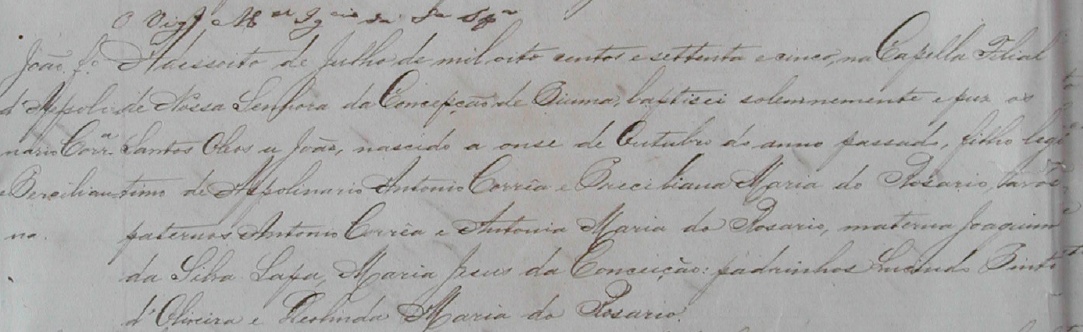 O Vig.º M.el Ig.cio da S.a
João, f.º
d'Appoli-
nario Corr.a
e Berciliau-
na.
Adessoito de Julho de mil oito centos e settenta e cinco, na Capella Filial
de Nossa Senhora da Conceição de Piuma, baptisei solemnemente e puz os
Santos Oleos a João, nascido a onse de Outubro do anno passado, filho legi
timo de Appolinario Antonio Corrêa e Preciliana Maria do Rosario, Avós
paternos Antonio Corrêa e Antonia Maria do Rosario, materna Joaquim
da Silva Lapa, Maria Jesus da Conceição: padrinhos Lucindo Pinto
d'Oliveira e Deolinda Maria do Rosario.